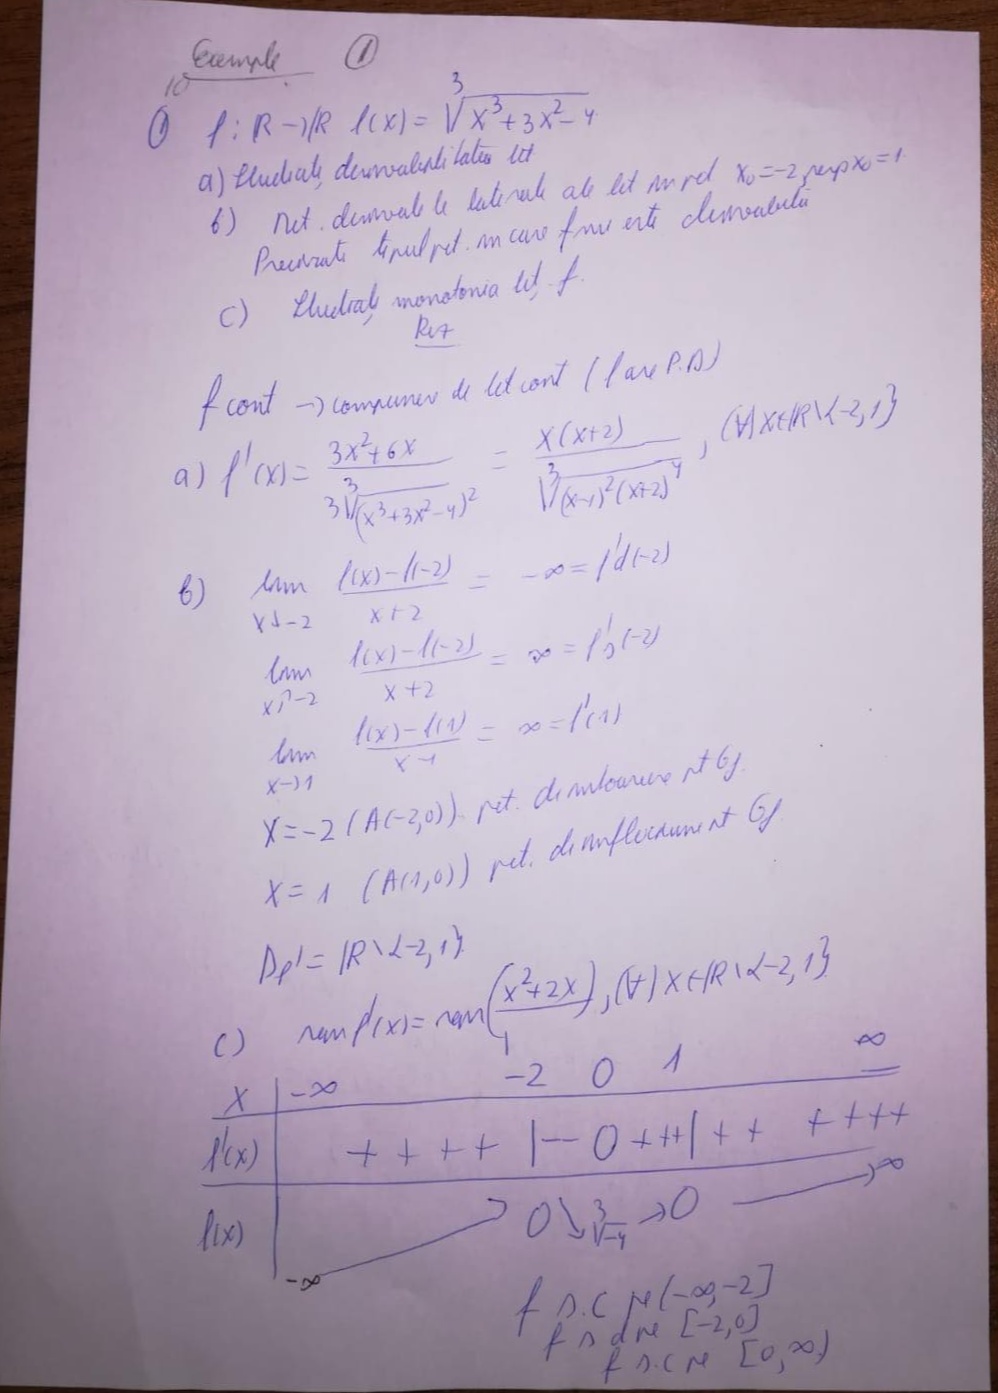 Exemple ①
① f : R → R f(x) = ∛(x³+3x²-4)
a) Studiați derivabilitatea fct
b) Det. derivatele laterale ale fct în pct x₀=-2, resp x₀=1.
Precizați tipul pct. în care f nu este derivabilă
c) Studiați monotonia fct. f.
Rez
f cont → compunere de fct cont (f are P.D)
a) f'(x) = (3x²+6x) / (3∛(x³+3x²-4)²) = x(x+2) / ∛((x-1)²(x+2)⁴), (∀) x∈R\{-2,1}
b) lim x↓-2 (f(x)-f(-2))/(x+2) = -∞ = f'd(-2)
lim x↑-2 (f(x)-f(-2))/(x+2) = ∞ = f's(-2)
lim x→1 (f(x)-f(1))/(x-1) = ∞ = f'(1)
x=-2 (A(-2,0)) pct. de întoarcere pt Gf.
x=1 (A(1,0)) pct. de inflexiune pt Gf.
Df' = R\{-2,1}
c) sgn f'(x) = sgn (x²+2x)/1, (∀) x∈R\{-2,1}
x | -∞ -2 0 1 ∞
f'(x) | + + + + |-- 0 +++| + + + + + +
f(x) | -∞ ↗ 0 ↘ ∛-4 → 0 → ∞
f s.c pe (-∞,-2]
f s d pe [-2,0]
f s.c pe [0,∞)